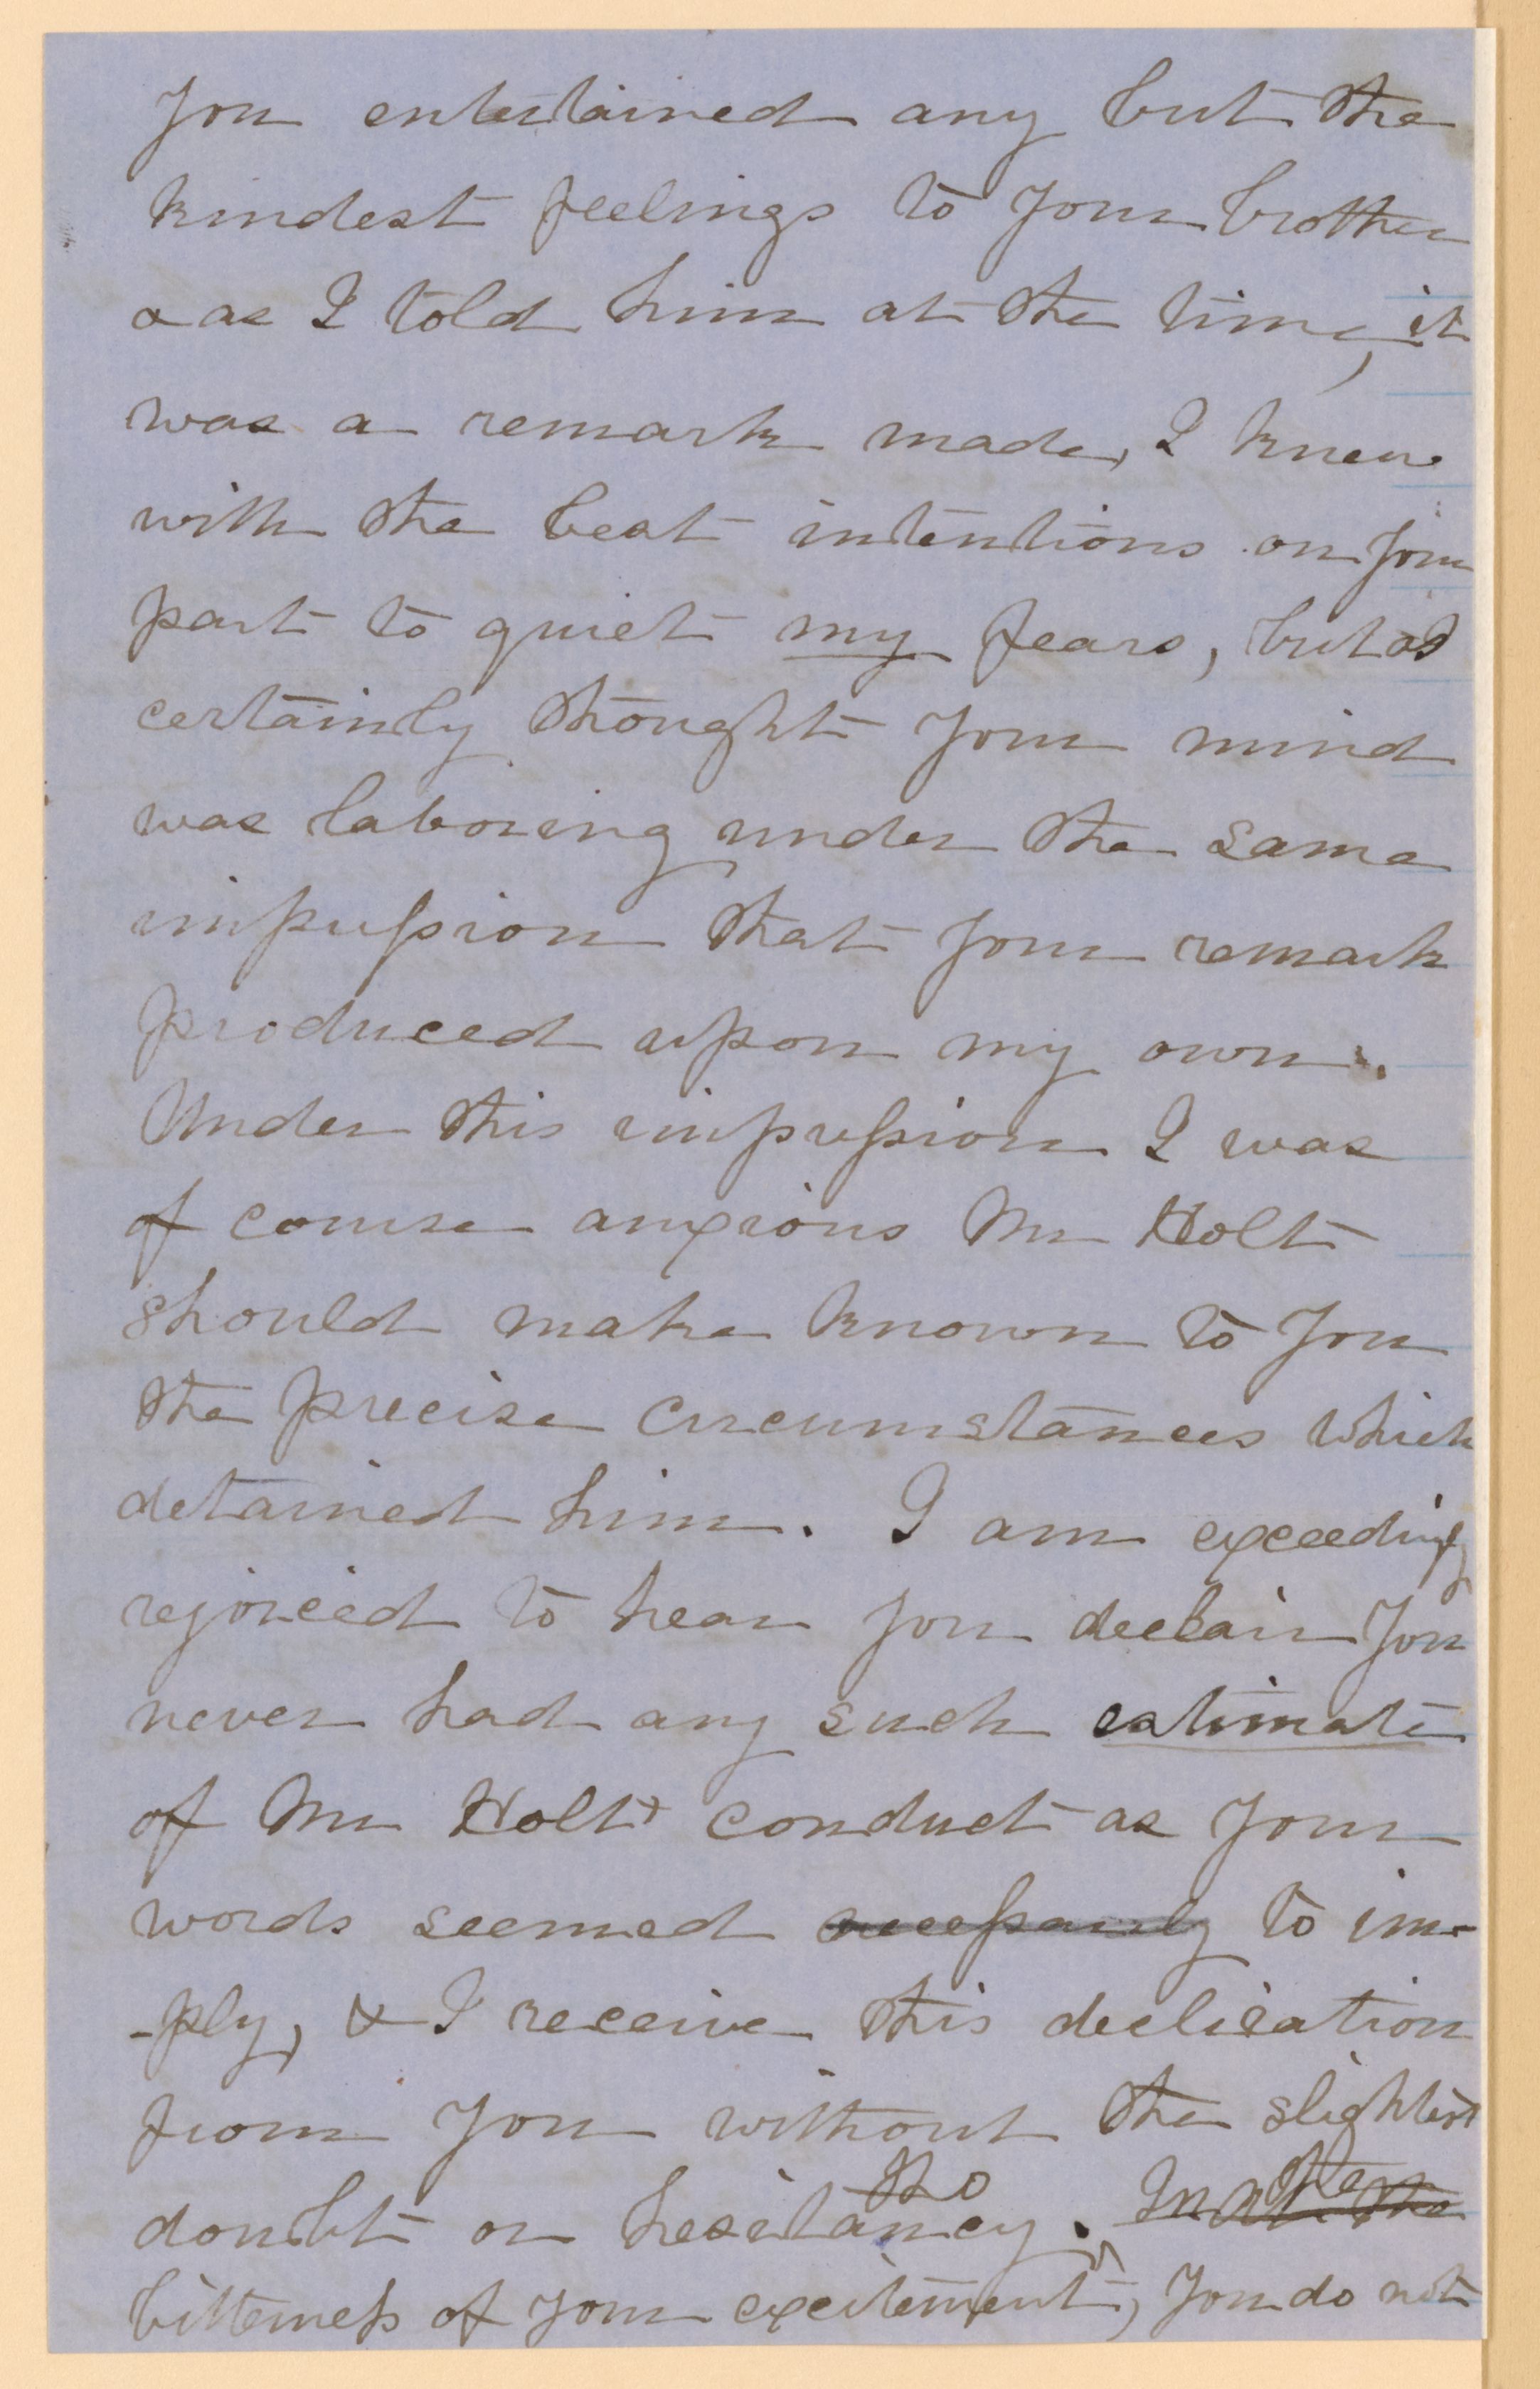 you entertained any but the
kindest feelings to your brother
& as I told him at the time, it
was a remark made, I knew
with the best intentions on your
part to quiet my fears, but I
certainly thought your mind
was laboring under the same
impression that your remark
produced upon my own.
Under this impression I was
of course anxious Mr Holt
should make known to you
the precise circumstances which
detained him. I am exceedingly
rejoiced to hear you declair you
never had any such estimate
of Mr Holts conduct as your
words seemed necessarily to im-
-ply, & I receive this decliration
from you without the slightest
doubt or hesitancy. In the
tho
bitterness of your excitement, you do not